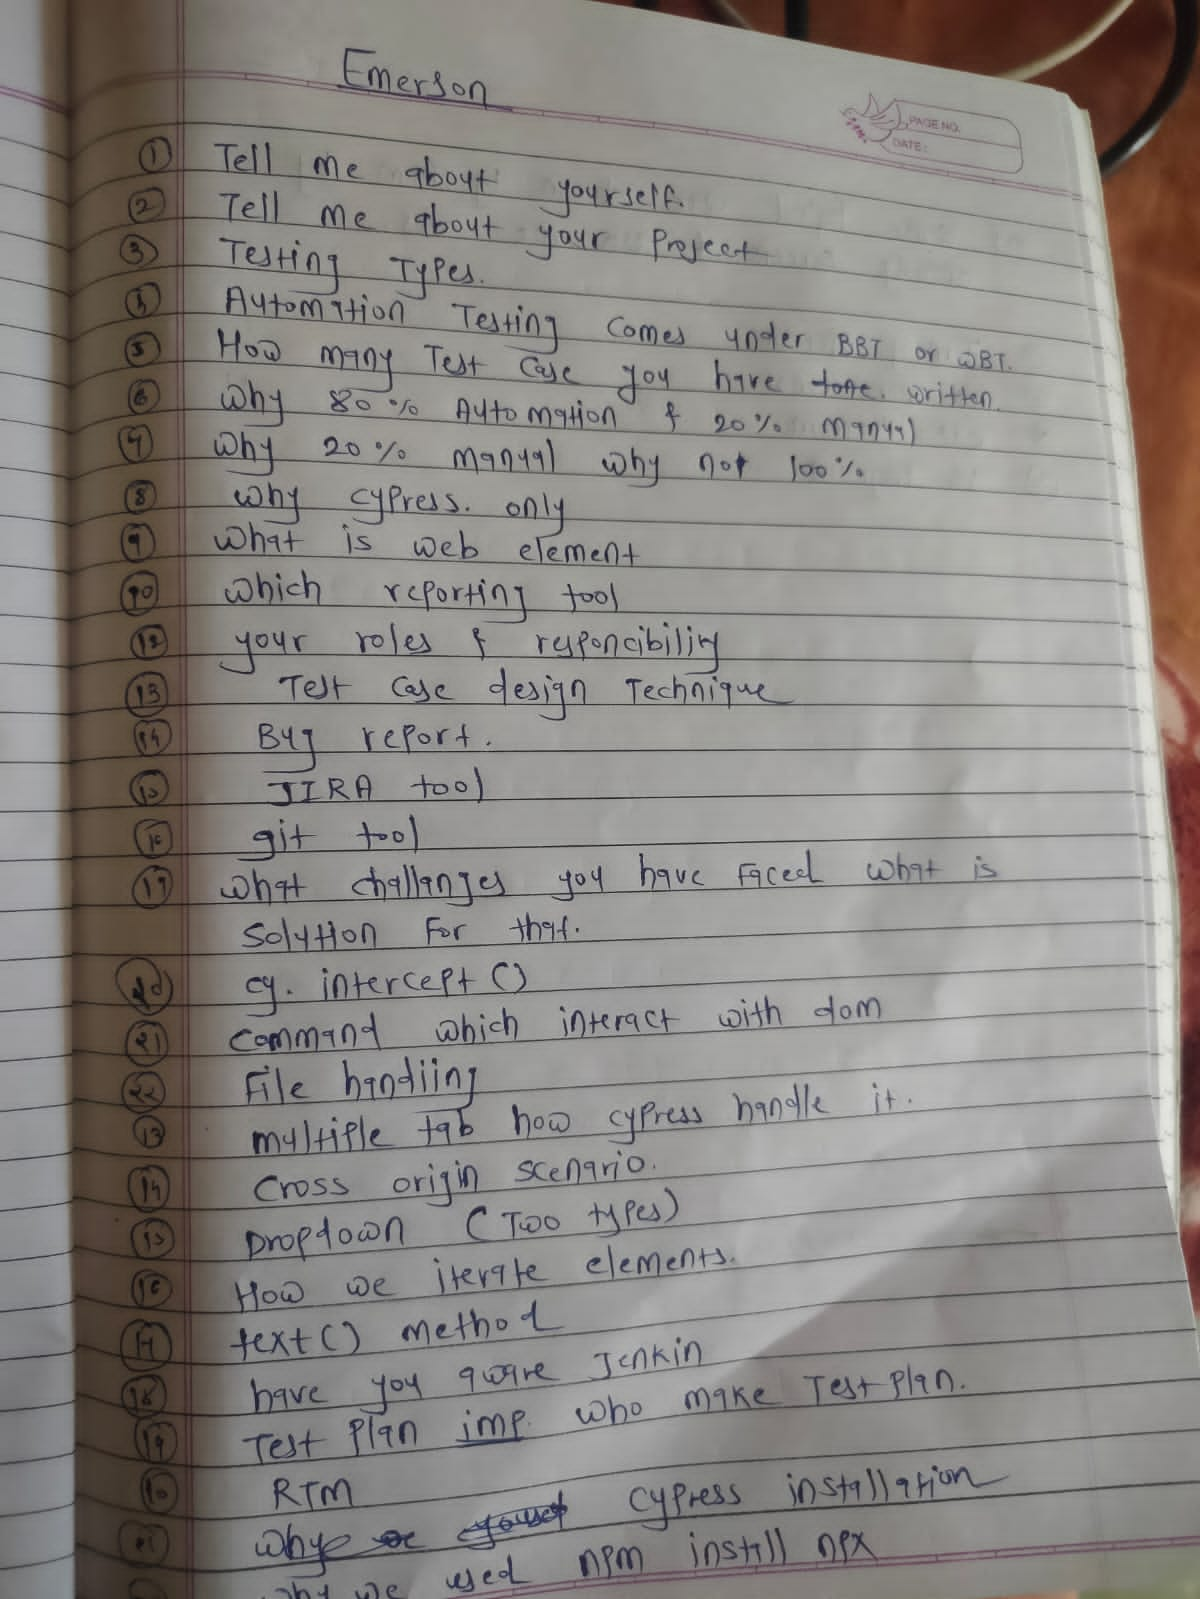 Emerson
PAGE NO.
DATE:
① Tell me about yourself.
② Tell me about your Project
③ Testing Types.
Automation Testing comes under BBT or WBT.
⑤ How many Test Case you have written.
⑥ Why 80% Automation & 20% Manual
Why 20% Manual why not 100%
⑧ why cypress. only
⑨ What is web element
⑩ which reporting tool
⑫ your roles & responcibility
⑬ Test Case design Technique
⑭ Bug report.
⑮ JIRA tool
⑯ git tool
⑰ What challanges you have faced what is
Solution For that.
cy. intercept ()
㉑ Command which interact with dom
㉒ File handling
⑬ multiple tab how cypress handle it.
⑭ Cross origin scenario.
⑮ Dropdown (Two types)
⑯ How we iterate elements.
⑰ text() method
⑱ have you aware Jenkin
⑲ Test Plan imp. who make Test Plan.
RTM
Why cypress installation
why we used npm install npx